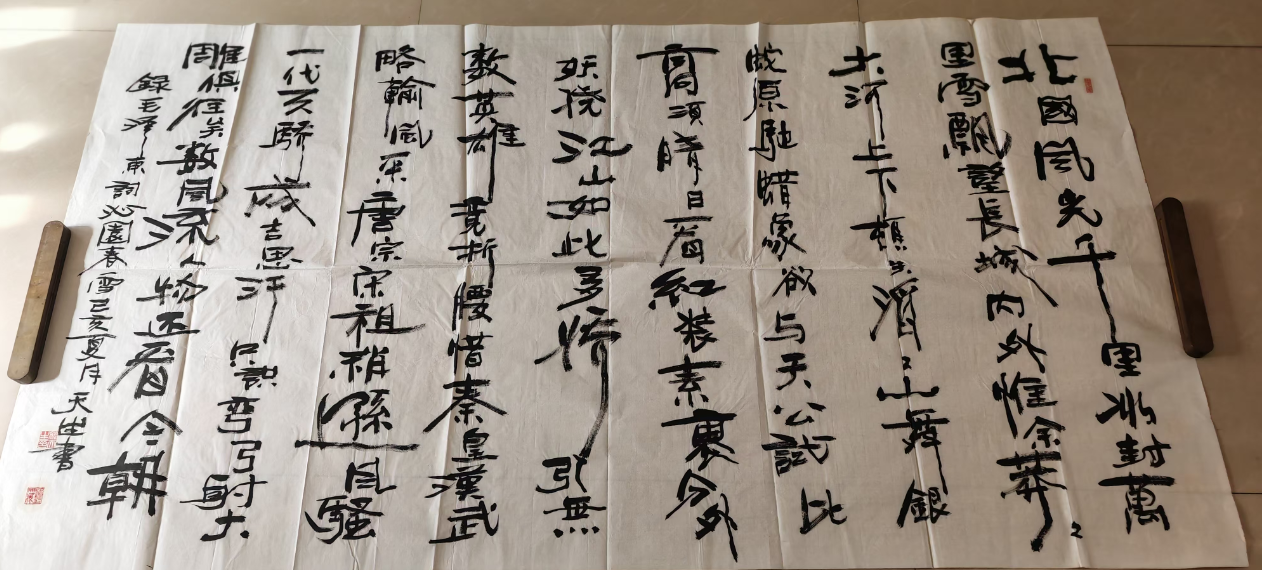 北國風光千里冰封萬
里雪飄望長城內外惟余莽〻
大河上下頓失滔〻山舞銀
蛇原馳蜡象欲与天公試比
高須晴日看紅装素裹分外
妖娆江山如此多娇引無
数英雄竞折腰惜秦皇漢武
略輸風采唐宗宋祖稍遜風騷
一代天骄成吉思汗只識弯弓射大
雕俱往矣数風流人物还看今朝
錄毛澤東詞沁園春雪己亥夏月天生書